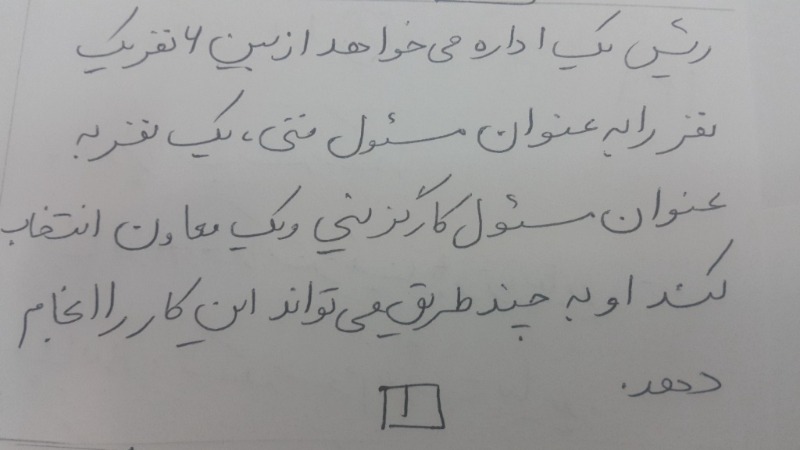 رئیس یک اداره می‌خواهد از بین ۶ نفر یک
نفر را به عنوان مسئول فنی، یک نفر به
عنوان مسئول کارگزینی و یک معاون انتخاب
کند او به چند طریق می‌تواند این کار را انجام
دهد.
۱